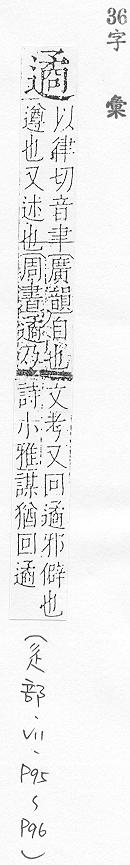 36字彙
遹
以律切音聿廣韻自也
遵也又述也周書遹乃
文考又回遹邪僻也
詩小雅謀猶回遹
(辵部·VII·P95~P96)